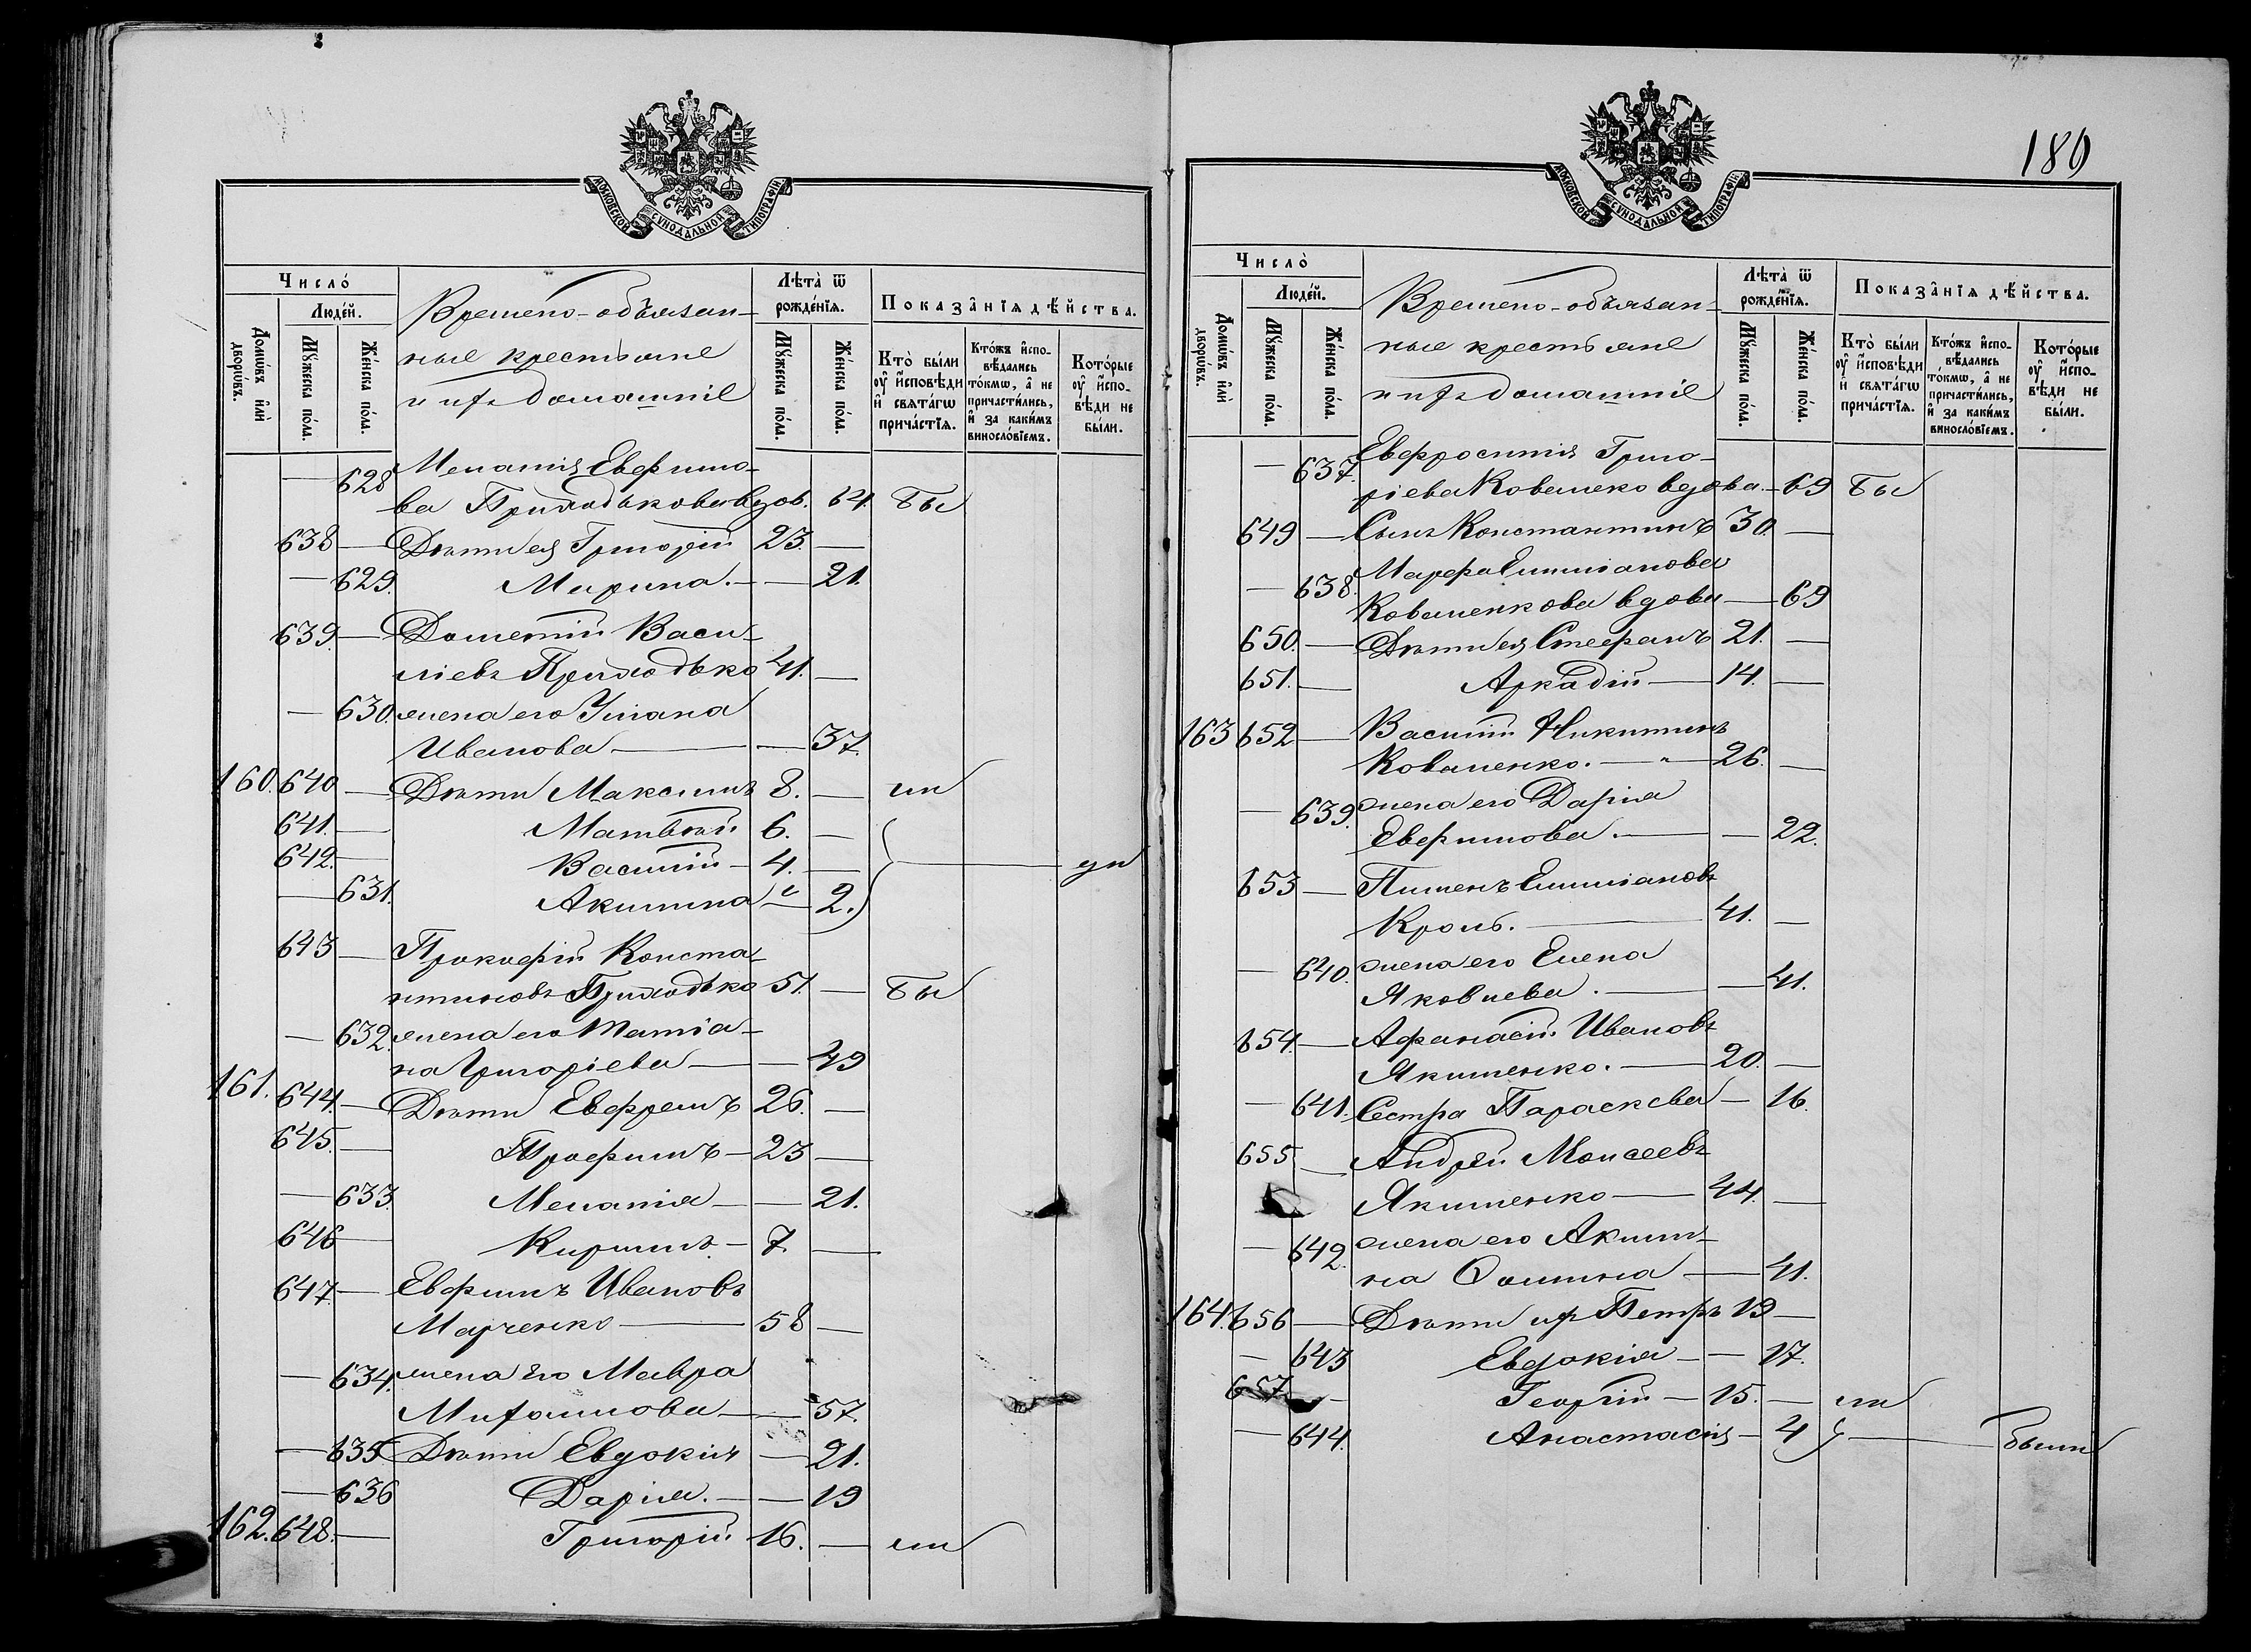 МОСКОВСКОЙ СѴНОДАЛЬНОЙ ТИПОГРАФІИ
Число́
Люде́й.
Домѡ́въ и҆лѝ дворѡ́въ.
Мꙋ́жеска по́ла.
Же́нска по́ла.
Времено-обязан-
ные крестьяне
и ихъ домашніе
Лѣ́та ѿ рожде́нїѧ.
Мꙋ́жеска по́ла.
Же́нска по́ла.
Показа̑нїѧ дѣ́йства.
Кто̀ бы́ли ᲂу҆ и҆сповѣди и҆ свѧта́гѡ прича́стїѧ.
Кто́жъ и҆спо-вѣ́дались то́кмѡ, а҆ не причасти́лись, и҆ за каки́мъ винослові́емъ.
Кото́рые ᲂу҆ и҆спо-вѣ́ди не бы́ли.
— 628 Меланія Евфимо-
ва Приходькова вдов. 64. бы
638 — Дѣти ея Григорій 23. —
— 629. Марина. — — 21.
639. — Дометій Васи-
ліевъ Приходько 41. —
— 630. жена его Уліана
Иванова — — 37.
160. 640 — Дѣти Максимъ 8. — ли
641. — Матвѣй 6. —
642. — Василій — 4. — ли
— 631. Акилина — 2.
643 — Прокофій Конста-
нтиновъ Приходько 51. — бы
— 632. жена его Татіа-
на Григоріева — — 49
161. 644. — Дѣти Евфремъ 26. —
645. — Трофимъ — 23 —
— 633. Меланія — — 21.
646 — Кирилъ — 7. —
647. — Евфимъ Ивановъ
Марченко — 58 —
— 634. жена его Мавра
Михайлова — — 57.
— 635 Дѣти Евдокія — 21.
— 636 Дарія. — — 19
162. 648. — Григорій 16. — ли
180
МОСКОВСКОЙ СѴНОДАЛЬНОЙ ТИПОГРАФІИ
Число̀
Люде́й.
Домѡ́въ и҆лѝ дворѡ́въ.
Мꙋ́жеска по́ла.
Же́нска по́ла.
Времено-обязан-
ные крестьяне
и ихъ домашніе
Лѣ́та ѿ рожде́нїѧ.
Мꙋ́жеска по́ла.
Же́нска по́ла.
Показа̑нїѧ дѣ́йства.
Кто̀ бы́ли ᲂу҆ и҆сповѣди и҆ свѧта́гѡ прича́стїѧ.
Кто́жъ и҆спо-вѣ́дались то́кмѡ, а҆ не причасти́лись, и҆ за каки́мъ винослові́емъ.
Кото́рые ᲂу҆ и҆спо-вѣ́ди не бы́ли.
— 637. Евфросинія Григо-
ріева Коваленко вдова. — 69 бы
649 — Сынъ Константинъ 30. —
— 638. Марфа Емиліанова
Коваленкова вдова — 69
650. — Дѣти ея Стефанъ 21. —
651. — Аркадій — 14. —
163 652 — Василій Никитинъ
Коваленко. — 26. —
— 639. жена его Дарія
Евфимова. — — 22.
653 — Пименъ Емиліановъ
Кроль. — 41. —
— 640. жена его Елена
Яковлева. — — 41.
654. — Афанасій Ивановъ
Якименко. — 20. —
— 641. Сестра Параскева — 16.
655 — Андрей Моисеевъ
Якименко — 44. —
— 642. жена его Акили-
на Фомина — 41.
164. 656 — Дѣти ихъ Петръ 19 —
— 643 Евдокія — — 17.
657 — Георгій — 15. — ли
— 644. Анастасія — 4 — были